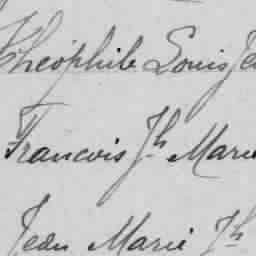 Théophile Louis Je
Francois Jh Marie
Jean Marie Jh